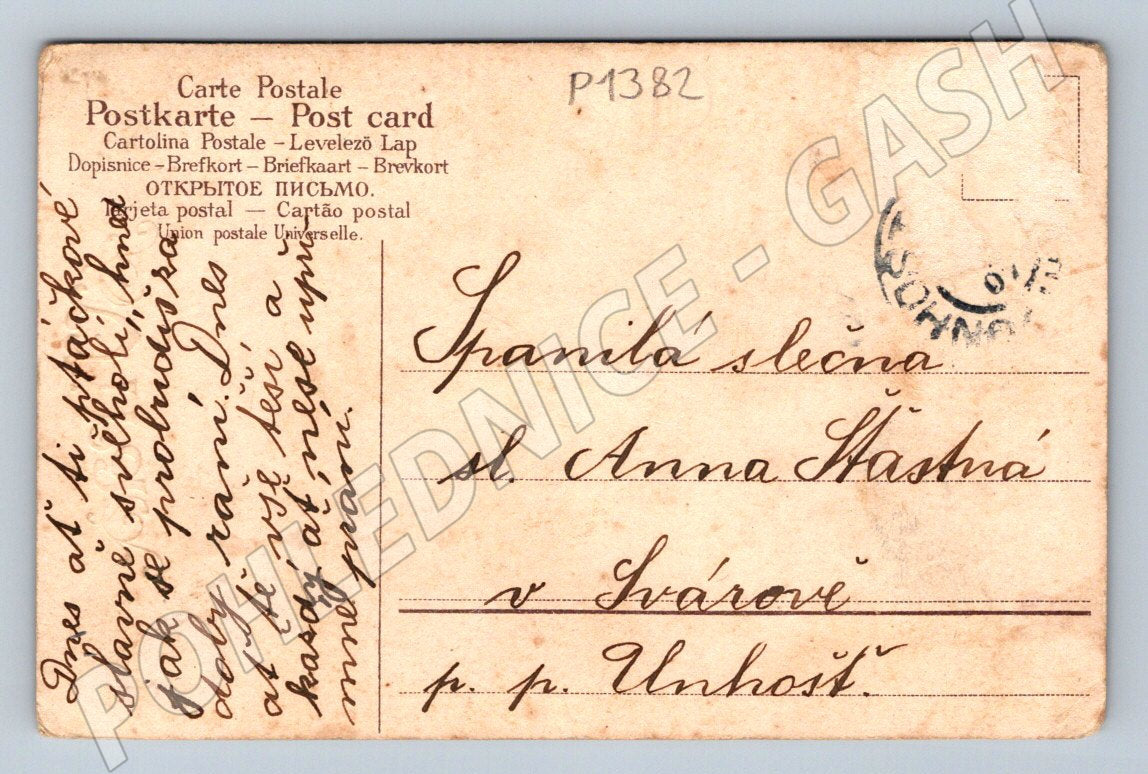 Carte Postale
Postkarte – Post card
Cartolina Postale – Levelező Lap
Dopisnice – Brefkort – Briefkaart – Brevkort
ОТКРЫТОЕ ПИСЬМО.
Tarjeta postal — Cartão postal
Union postale Universelle.
P1382
Spanilá slečna
sl. Anna Šťastná
v Svárově
p. p. Unhošť.
Dnes ať ti ptáčkové
slavně švěholí, hned
jak se probudíš za
doby ranní. Dnes
ať tě vše těší a
každý ať nese upří-
mné přání.
POHLEDNICE - GASH